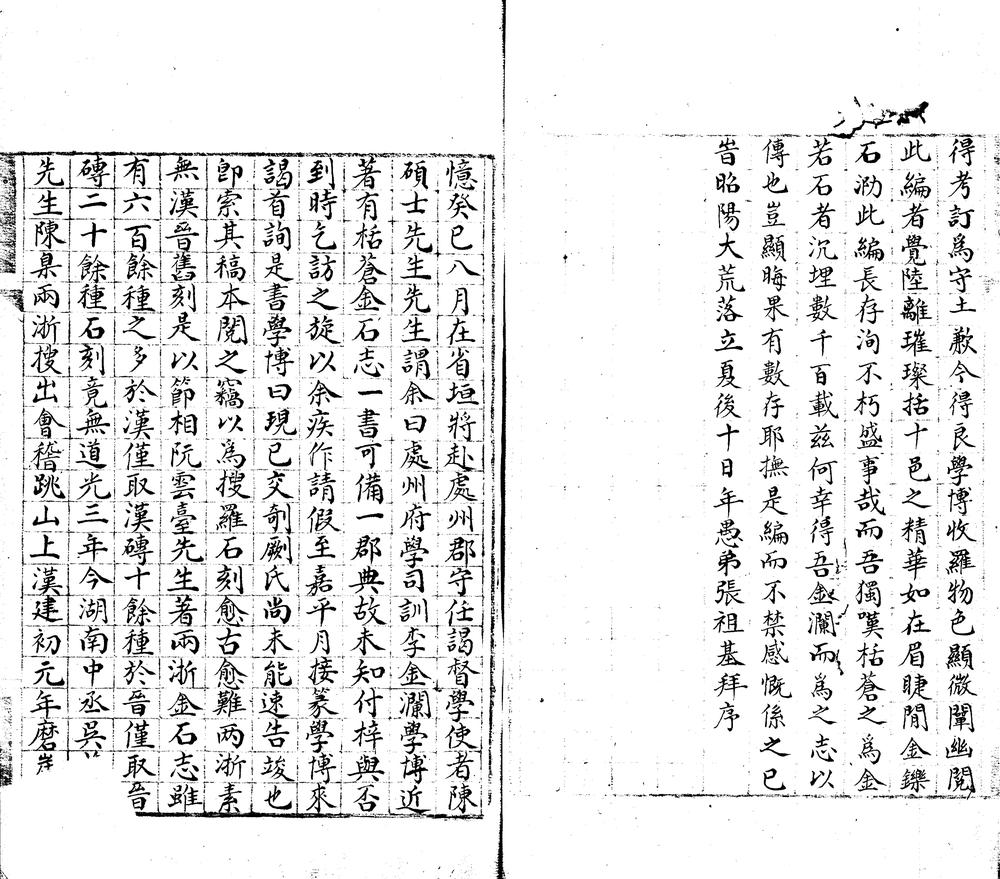 得考訂為守土歉今得良學博收羅物色顯微闡幽閱
此編者覺陸離璀璨括十邑之精華如在眉睫間金鑠
石泐此編長存洵不朽盛事哉而吾獨嘆栝蒼之為金
若石者沉埋數千百載茲何幸得吾金瀾而為之志以
傳也豈顯晦果有數存耶撫是編而不禁感慨係之已
旹昭陽大荒落立夏後十日年愚弟張祖基拜序
憶癸巳八月在省垣將赴處州郡守任謁督學使者陳
碩士先生先生謂余曰處州府學司訓李金瀾學博近
著有栝蒼金石志一書可備一郡典故未知付梓與否
到時乞訪之旋以余疾作請假至嘉平月接篆學博來
謁首詢是書學博曰現已交剞劂氏尚未能速告竣也
即索其稿本閱之竊以為搜羅石刻愈古愈難兩浙素
無漢晉舊刻是以節相阮雲臺先生著兩浙金石志雖
有六百餘種之多於漢僅取漢磚十餘種於晉僅取晉
磚二十餘種石刻竟無道光三年今湖南中丞吳
先生陳臬兩浙搜出會稽跳山上漢建初元年磨崖